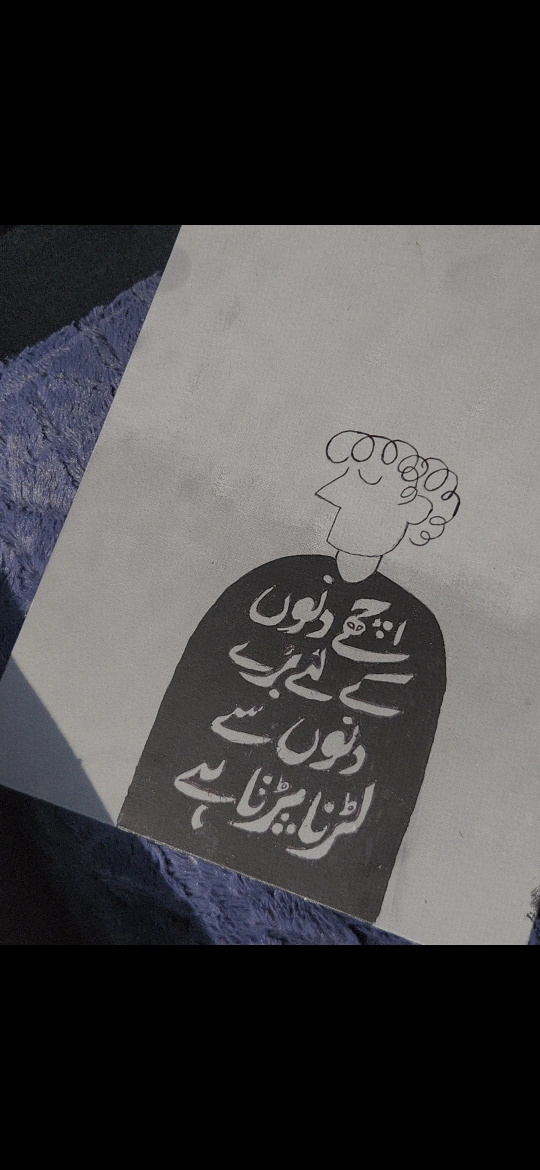 اچھے دنوں
کے لئے بُرے
دنوں سے
لڑنا پڑتا ہے